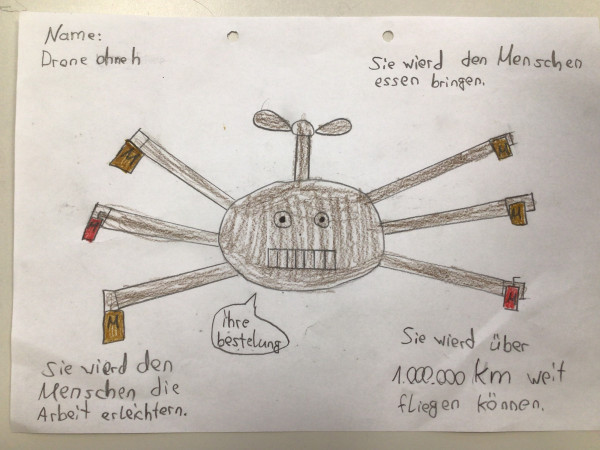 Name:
Drone ohneh
Sie wierd den Menschen
essen bringen.
M
M
M
M
M
M
ihre
bestelung
Sie wierd den
Menschen die
Arbeit erleichtern.
Sie wierd über
1.000.000 km weit
fliegen können.